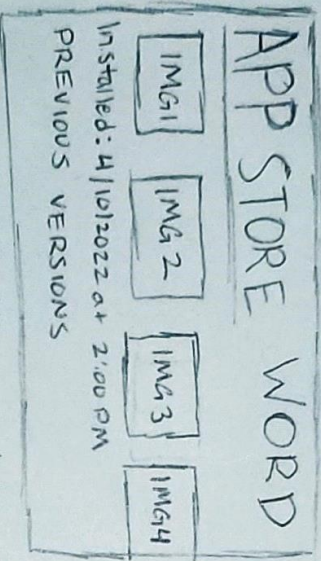 APP STORE WORD
IMG1 IMG2 IMG3 IMG4
Installed: 4/10/2022 at 2:00 PM
PREVIOUS VERSIONS